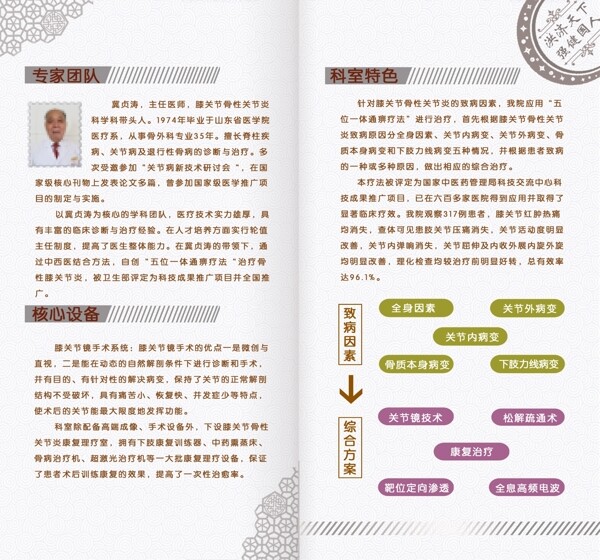 专家团队
冀贞涛，主任医师，膝关节骨性关节炎
科学科带头人。1974年毕业于山东省医学院
医疗系，从事骨外科专业35年。擅长脊柱疾
病、关节病及退行性骨病的诊断与治疗。多
次受邀参加“关节病新技术研讨会”，在国
家级核心刊物上发表论文多篇，曾参加国家级医学推广项
目的制定与实施。
以冀贞涛为核心的学科团队，医疗技术实力雄厚，具
有丰富的临床诊断与治疗经验。在人才培养方面实行轮值
主任制度，提高了医生整体能力。在冀贞涛的带领下，通
过中西医结合方法，自创“五位一体通痹疗法”治疗骨
性膝关节炎，被卫生部评定为科技成果推广项目并全国推
广。
核心设备
膝关节镜手术系统：膝关节镜手术的优点一是微创与
直视，二是能在动态的自然解剖条件下进行诊断和手术，
并有目的、有针对性的解决病变，保持了关节的正常解剖
结构不受破坏，具有痛苦小、恢复快、并发症少等特点，
使术后的关节能最大限度地发挥功能。
科室除配备高端成像、手术设备外，下设膝关节骨性
关节炎康复理疗室，拥有下肢康复训练器、中药熏蒸床、
骨病治疗机、超激光治疗机等一大批康复理疗设备，保证
了患者术后训练康复的效果，提高了一次性治愈率。
洪济天下
强健国人
科室特色
针对膝关节骨性关节炎的致病因素，我院应用“五
位一体通痹疗法”进行治疗，首先根据膝关节骨性关节
炎致病原因分全身因素、关节内病变、关节外病变、骨
质本身病变和下肢力线病变五种情况，并根据患者致病
的一种或多种原因，做出相应的综合治疗。
本疗法被评定为国家中医药管理局科技交流中心科技
成果推广项目，已在六百多家医院得到应用并取得了
显著临床疗效。我院观察317例患者，膝关节红肿热痛
均消失，查体可见患肢关节压痛消失，关节活动度明显
改善，关节内弹响消失，关节屈伸及内收外展内旋外旋
均明显改善，理化检查均较治疗前明显好转，总有效率
达96.1%。
致病因素
全身因素
关节外病变
关节内病变
骨质本身病变
下肢力线病变
综合方案
关节镜技术
松解疏通术
康复治疗
靶位定向渗透
全息高频电波